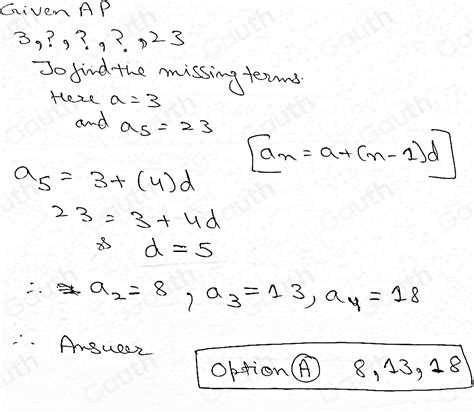 Given AP
3, ?, ?, ?, 23
To find the missing terms.
Here a = 3
and a₅ = 23
[aₙ = a + (n - 1)d]
a₅ = 3 + (4)d
23 = 3 + 4d
d = 5
∴ a₂ = 8, a₃ = 13, a₄ = 18
∴ Answer
Option Ⓐ 8, 13, 18